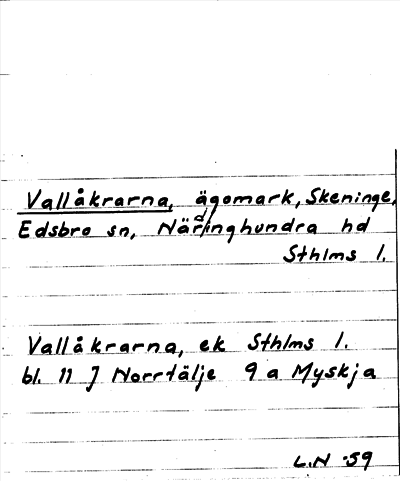 Vallåkrarna, ägomark, Skeninge,
Edsbro sn, Närdinghundra hd
Sthlms l.
Vallåkrarna, ek Sthlms l.
bl. 11 J Norrtälje 9 a Myskja
L.N -59